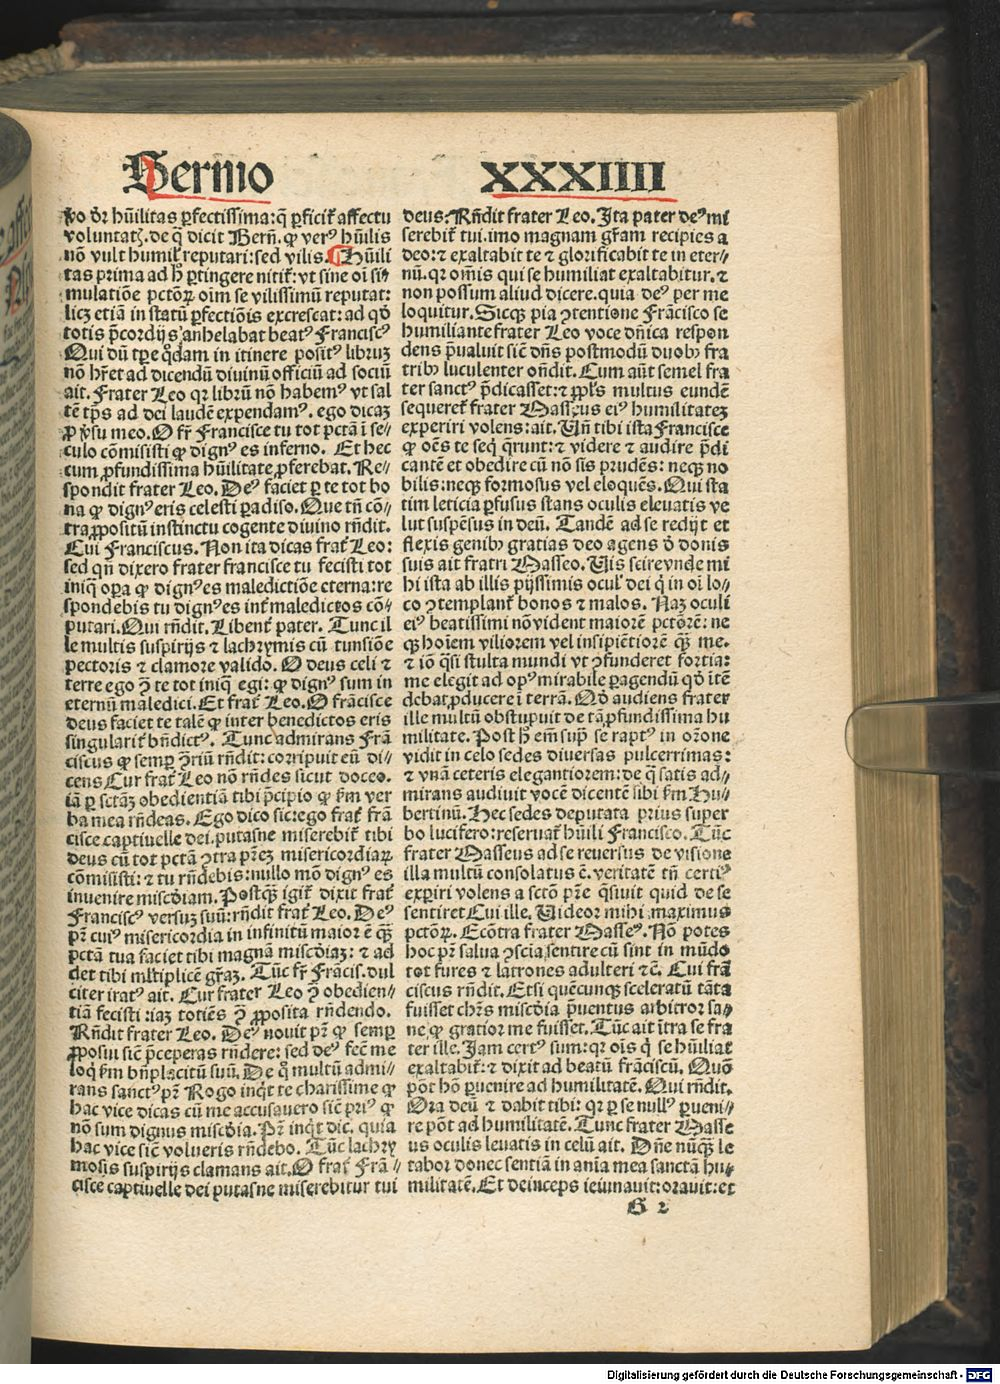 Sermo XXXIIII
vo dr̄ hūilitas ꝑfectissima: q̄ ꝑficit᷑ affectu
volunta tꝭ. de q̄ dicit Bern̄. ꝙ verꝰ hūilis
nō vult humil᷑ reputari: sed vilis. ¶ Hūili
tas prima ad h̄ ꝑtingere nitit᷑: vt sine oī si⸗
mulatiōe pctōꝝ oīm se vilissimū reputat:
licꝫ etiā in statū ꝑfectiōis excrescat: ad qd̄
totis p̄cordijs anhelabat beatꝰ Franciscꝰ
Qui dū tꝑe q̇dam in itinere positꝰ libruꝫ
nō hr̄et ad dicendū diuinū officiū ad sociū
ait. Frater Leo qꝛ librū nō habemꝰ vt sal
tē tp̄s ad dei laudē expendamꝰ. ego dicaꝫ
ꝓ v̄su meo. O fr̄ Francisce tu tot pctā ī se⸗
culo cōmisisti ꝙ dignꝰ es inferno. Et hec
cum ꝓfundissima hūilitate ꝓferebat. Re⸗
spondit frater Leo. Deꝰ faciet ꝑ te tot bo
na ꝙ dignꝰ eris celesti ꝑadiso. Que tn̄ cō⸗
tra ꝓpositū instinctu cogente diuino rn̄dit.
Cui Franciscus. Non ita dicas frat᷑ Leo:
sed qn̄ dixero frater francisce tu fecisti tot
iniq̄ oꝑa ꝙ dignꝰ es maledictiōe eterna: re
spondebis tu dignꝰ es int᷑ maledictos cō⸗
putari. Qui rn̄dit. Libent᷑ pater. Tunc il
le multis suspirijs ⁊ lachrymis cū tunsiōe
pectoris ⁊ clamore valido. O deus celi ⁊
terre ego ꝯ̄ te tot iniq̄ egi: ꝙ dignꝰ sum in
eternū maledici. Et frat᷑ Leo. O frācisce
deus faciet te talē ꝙ inter benedictos eris
singularit᷑ bn̄dictꝰ. Tunc admirans Frā
ciscus ꝙ semꝑ ꝯ̄riū rn̄dit: corripuit eū di⸗
cens Cur frat᷑ Leo nō rn̄des sicut doceo.
iā ꝑ sctāꝫ obedientiā tibi p̄cipio ꝙ ẜm ver
ba mea rn̄deas. Ego dico sic: ego frat᷑ frā
cisce captiuelle dei. putasne miserebit᷑ tibi
deus cū tot pctā ꝯtra pr̄eꝫ misericordiaꝝ
cōmisisti: ⁊ tu rn̄debis: nullo mō dignꝰ es
inuenire misc̄diam. Postq̄ꝫ igit᷑ dixit frat᷑
Franciscꝰ versuꝫ suū: rn̄dit frat᷑ Leo. Deꝰ
pr̄ cuiꝰ misericordia in infinitū maior ē q̄ꝫ
pctā tua faciet tibi magnā misc̄diaꝫ: ⁊ ad
det tibi ml̓tiplicē gr̄aꝫ. Tūc fr̄ Frācis. dul
citer iratꝰ ait. Cur frater Leo ꝯ̄ obedien⸗
tiā fecisti: iaꝫ totiēs ꝯ̄ ꝓposita rn̄dendo.
Rn̄dit frater Leo. Deꝰ nouit pr̄ ꝙ semꝑ
ꝓposui sic̄ p̄ceperas rn̄dere: sed deꝰ fec̄ me
loq̇ ẜm bn̄placitū suū. De q̊ multū admi⸗
rans sanctꝰ pr̄ Rogo inq̇t te charissime ꝙ
hac vice dicas cū me accusauero sic̄ priꝰ ꝙ
nō sum dignus misc̄dia. Pr̄ inq̇t dic. quia
hac vice sic̄ volueris rn̄debo. Tūc lachry
mosis suspirijs clamans ait. O frat᷑ Frā⸗
cisce captiuelle dei putasne miserebitur tui
deus: Rn̄dit frater Leo. Ita pater deꝰ mi
serebit᷑ tui. imo magnam gr̄am recipies a
deo: ⁊ exaltabit te ⁊ glorificabit te in eter⸗
nū. qꝛ om̄is qui se humiliat exaltabitur. ⁊
non possum aliud dicere. quia deꝰ per me
loquitur. Sicqꝫ pia ꝯtentione Frācisco se
humiliante frater Leo voce dn̄ica respon
dens p̄ualuit sic̄ dn̄s postmodū duobꝰ fra
tribꝰ luculenter on̄dit. Cum aūt semel fra
ter sanctꝰ p̄dicasset: ⁊ ppl̓s multus eundē
sequeret᷑ frater Masseus eiꝰ humilitateꝫ
experiri volens: ait. Vn̄ tibi ista Francisce
ꝙ oēs te seq̇ q̄runt: ⁊ videre ⁊ audire p̄di
cantē et obedire cū nō sis prudēs: neqꝫ no
bilis: neqꝫ formosus vel eloquēs. Qui sta
tim leticia ꝑfusus stans oculis eleuatis ve
lut suspēsus in deū. Tandē ad se redijt et
flexis genibꝰ gratias deo agens d̄ donis
suis ait fratri Masseo. Vis scire vnde mi
hi ista ab illis pijssimis ocul̓ dei q̇ in oī lo⸗
co ꝯtemplant᷑ bonos ⁊ malos. Naꝫ oculi
eiꝰ beatissimi nō vident maiorē pctōrē: ne
qꝫ hoīem viliorem vel insipiētiorē q̄ꝫ me.
⁊ iō q̄si stulta mundi vt ꝯfunderet fortia:
me elegit ad opꝰ mirabile ꝑagendū qd̄ ītē
debat ꝓducere ī terrā. Qd̄ audiens frater
ille multū obstupuit de tā ꝓfundissima hu
militate. Post h̄ em̄ sup̄ se raptꝰ in or̄one
vidit in celo sedes diuersas pulcerrimas:
⁊ vnā ceteris elegantiorem: de q̄ satis ad⸗
mirans audiuit vocē dicentē sibi ẜm Hu⸗
bertinū. Hec sedes deputata prius super
bo lucifero: reseruat᷑ hūili Francisco. Tūc
frater Masseus ad se reuersus de visione
illa multū consolatus ē. veritatē tn̄ certiꝰ
exꝑiri volens a sctō pr̄e q̄siuit quid de se
sentiret Cui ille. Videor mihi maximus
pctōꝝ. Ecōtra frater Masseꝰ. Nō potes
hoc pr̄ salua ꝯscīa sentire cū sint in mūdo
tot fures ⁊ latrones adulteri ⁊c̄. Cui frā
ciscus rn̄dit. Etsi quēcunqꝫ sceleratū tāta
fuisset chr̄s misc̄dia p̄uentus arbitror sa⸗
ne ꝙ gratior me fuisset. Tūc ait ītra se fra
ter ille. Jam certꝰ sum: qꝛ oīs q̇ se hūiliat
exaltabit᷑: ⁊ dixit ad beatū frāciscū. Quō
pōt hō ꝑuenire ad humilitatē. Qui rn̄dit.
Ora deū ⁊ dabit tibi: qꝛ ꝑ se nullꝰ ꝑueni⸗
re pōt ad humilitatē. Tunc frater Masse
us oculis leuatis in celū ait. Dn̄e nūq̄ꝫ le
tabor donec sentiā in anīa mea sanctā hu⸗
militatē. Et deinceps ieiunauit: orauit: et
G 2
Digitalisierung gefördert durch die Deutsche Forschungsgemeinschaft - DFG